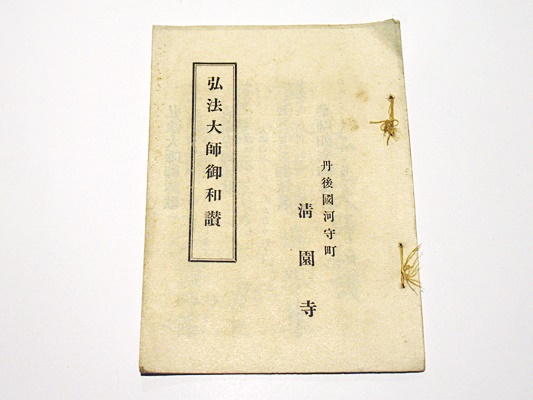 丹後國河守町
清園寺
弘法大師御和讃